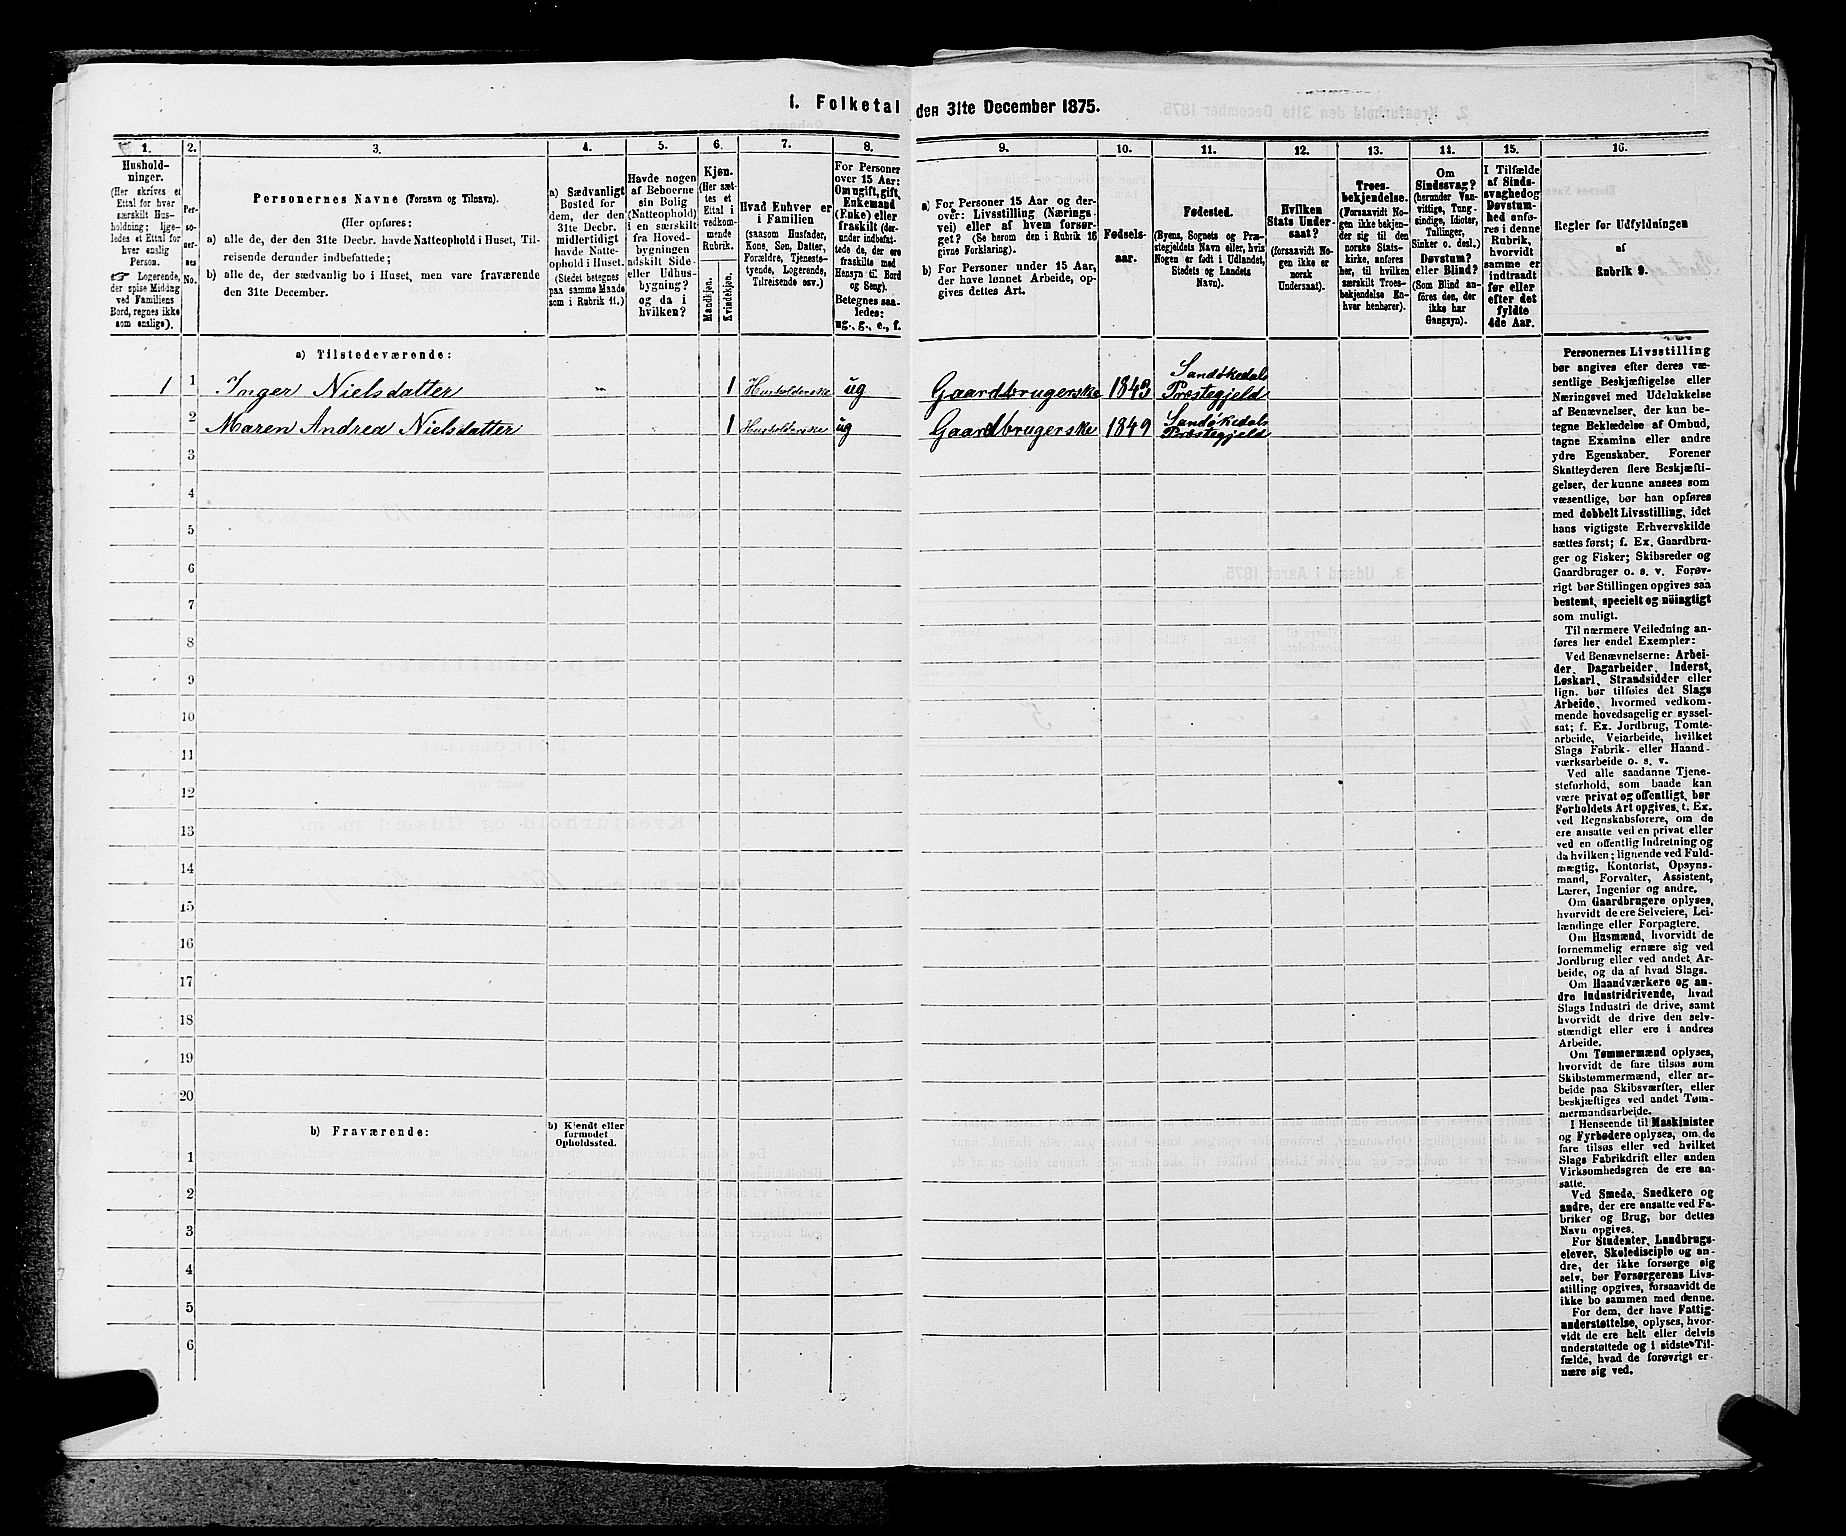 1. Folketal den 31te December 1875.
1.
Hushold-
ninger.
(Her skrives et
Ettal for hver
særskilt Hus-
holdning; lige-
ledes et Ettal for
hver enslig
Person.
Logerende,
der spise Middag
ved Familiens
Bord, regnes ikke
som enslige).
2.
Per-
so-
ner-
nes
No.
3.
Personernes Navne (Fornavn og Tilnavn).
(Her opføres:
a) alle de, der den 31te Decbr. havde Natteophold i Huset, Til-
reisende derunder indbefattede;
b) alle de, der sædvanlig bo i Huset, men vare fraværende
den 31te December.
4.
a) Sædvanligt
Bosted for
dem, der den
31te Decbr.
midlertidigt
havde Natte-
ophold i Huset.
(Stedet betegnes
paa samme Maade
som i Rubrik 11.)
5.
Havde nogen
af Beboerne
sin Bolig
(Natteophold)
i en særskilt
fra Hoved-
bygningen
adskilt Side-
eller Udhus-
bygning?
og da i
hvilken?
6.
Kjøn.
(Her sæt-
tes et
Ettal i
vedkom-
mende
Rubrik.
Mandkjøn.
Kvindekjøn.
7.
Hvad Enhver er
i Familien
(saasom Husfader,
Kone, Søn, Datter,
Forældre, Tjeneste-
tyende, Logerende,
Tilreisende osv.)
8.
For Personer
over 15 Aar:
Om ugift, gift,
Enkemand
(Enke) eller
fraskilt (der-
under indbefat-
tede de, der ere
fraskilte med
Hensyn til Bord
og Seng).
Betegnes saa-
ledes:
ug., g., e., f.
9.
a) For Personer 15 Aar og der-
over: Livsstilling (Nærings-
vei) eller af hvem forsør-
get? (Se herom den i Rubrik 16
givne Forklaring).
b) For Personer under 15 Aar,
der have lønnet Arbeide, op-
gives dettes Art.
10.
Fødsels-
aar.
11.
Fødested.
(Byens, Sognets og Præ-
stegjeldets Navn eller, hvis
Nogen er født i Udlandet,
Stedets og Landets
Navn).
12.
Hvilken
Stats Under-
saat?
(forsaavidt No-
gen ikke er
norsk
Undersaat).
13.
Troes-
bekjendelse.
(Forsaavidt No-
gen ikke bekjen-
der sig til den
norske Stats-
kirke, anføres
her, til hvilken
særskilt Troes-
bekjendelse En-
hver henhører).
14.
Om
Sindssvag?
(herunder Van-
vittige, Tung-
sindige, Idioter,
Tullinger,
Sinker o. desl.)
Døvstum?
eller Blind?
(Som Blind an-
føres den, der
ikke har
Gangsyn).
15.
I Tilfælde
af Sinds-
svaghed og
Døvstum-
hed anfø-
res i denne
Rubrik,
hvorvidt
samme er
indtraadt
før eller
efter det
fyldte
4de Aar.
16.
Regler for Udfyldningen
af
Rubrik 9.
a) Tilstedeværende:
1 1 Inger Nielsdatter 1 Husholderske ug Gaardbrugerske 1843 Sandøkedals
Præstegjeld
2 Maren Andrea Nielsdatter 1 Husholderske ug Gaardbrugerske 1849 Sandøkedals
Præstegjeld
3
4
5
6
7
8
9
10
11
12
13
14
15
16
17
18
19
20
b) Fraværende:
b) Kjendt eller
formodet
Opholdssted.
1
2
3
4
5
6
Personernes Livsstilling
bør angives efter deres væ-
sentlige Beskjæftigelse eller
Næringsvei med Udelukkelse
af Benævnelser, der kun be-
tegne Beklædelse af Ombud,
tagne Examina eller andre
ydre Egenskaber. Forener
Skatteyderen flere Beskjæfti-
gelser, der kunne ansees som
væsentlige, bør han opføres
med dobbelt Livsstilling, idet
hans vigtigste Erhvervskilde
sættes først; f. Ex. Gaardbru-
ger og Fisker; Skibsreder og
Gaardbruger o. s. v. Forøv-
rigt bør Stillingen opgives saa
bestemt, specielt og nöiagtigt
som muligt.
Til nærmere Veiledning an-
føres her endel Exempler:
Ved Benævnelserne: Arbei-
der, Dagarbeider, Inderst,
Løskarl, Strandsidder eller
lign. bør tilføies det Slags
Arbeide, hvormed vedkom-
mende hovedsagelig er syssel-
sat; f. Ex. Jordbrug, Tomte-
arbeide, Veiarbeide, hvilket
Slags Fabrik- eller Haand-
værksarbeide o. s. v.
Ved alle saadanne Tjene-
steforhold, som baade kan
være privat og offentligt, bør
Forholdets Art opgives, t. Ex.
ved Regnskabsførere, om de
ere ansatte ved en privat eller
ved en offentlig Indretning og
da hvilken; lignende ved Fuld-
mægtig, Kontorist, Opsyns-
mand, Forvalter, Assistent,
Lærer, Ingeniør og andre.
Om Gaardbrugere oplyses,
hvorvidt de ere Selveiere, Lei-
lændinge eller Forpagtere.
Om Husmænd, hvorvidt de
fornemmelig ernære sig ved
Jordbrug eller ved andet Ar-
beide, og da af hvad Slags.
Om Haandværkere og an-
dre Industridrivende, hvad
Slags Industri de drive, samt
hvorvidt de drive den selv-
stændigt eller ere i andres
Arbeide.
Om Tømmermænd oplyses,
hvorvidt de fare tilsøs som
Skibstømmermænd, eller ar-
beide paa Skibsværfter, eller
beskjæftiges ved andet Tøm-
mermandsarbeide.
I Henseende til Maskinister
og Fyrbødere oplyses, om de
fare tilsøs eller ved hvilket
Slags Fabrikdrift eller anden
Virksomhedsgren de ere an-
satte.
Ved Smede, Snedkere og
andre, der ere ansatte ved Fa-
briker og Brug, bør dettes
Navn opgives.
For Studenter, Landbrugs-
elever, Skoledisciple og an-
dre, der ikke forsørge sig
selv, bør Forsørgerens Livs-
stilling opgives, forsaavidt de
ikke bo sammen med denne.
For dem, der have Fattig-
understøttelse, oplyses, hvor-
vidt de ere helt eller delvis
understøttede og i sidste Til-
fælde, hvad de forøvrigt er-
nære sig ved.